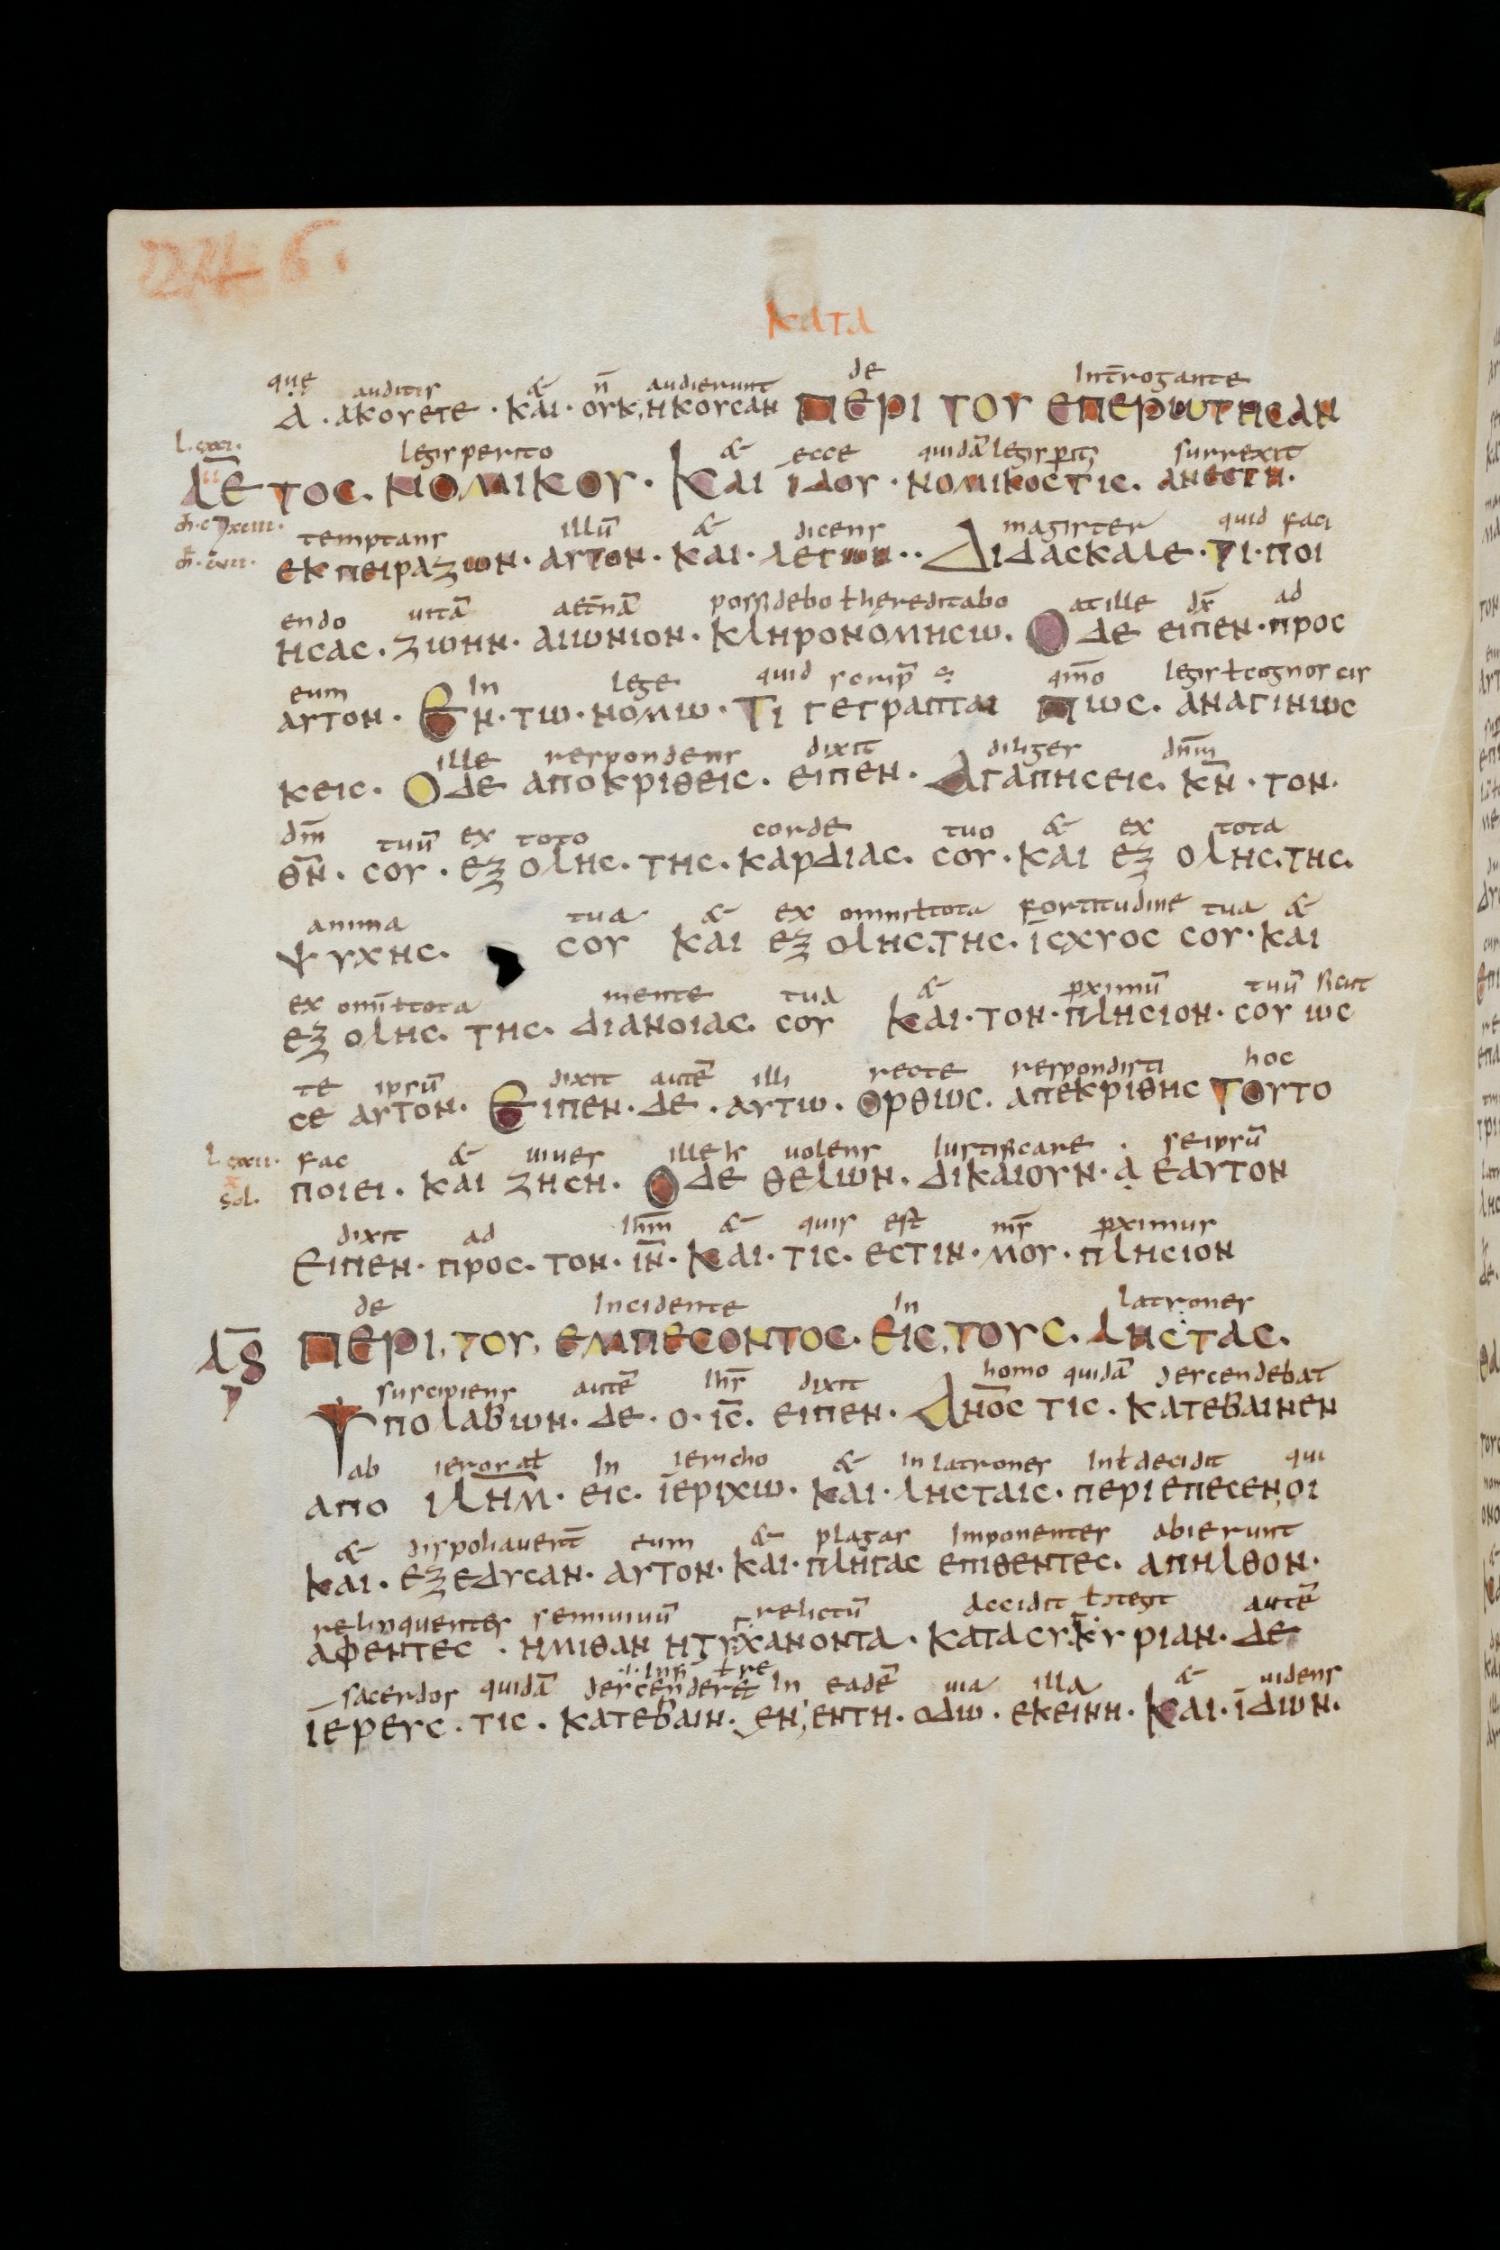 224 6.
ΚΑΤΑ
que auditis & n̄ audierunt de Int̄rogante
Ἁ · ΑΚΟΥΕΤΕ · ΚΑΙ · ΟΥΚ, ΗΚΟΥCΑΝ ΠΕΡΙ ΤΟΥ ΕΠΕΡΩΤΗCΑΝ
l. cxxi.
legisperito & ecce quidā legisperit; surrexit
Λ̄Ε̄ ΤΟC. ΝΟΜΙΚΟΥ · ΚΑΙ ΪΔΟΥ · ΝΟΜΙΚΟCΤΙC. ΑΝΕCΤΗ.
temptans illū & dicens magister quid faci
ΕΚΠΕΙΡΑΖΩΝ · ΑΥΤΟΝ · ΚΑΙ · ΛΕΓΩΝ · · ΔΙΔΑCΚΑΛΕ · ΤΙ · ΠΟΙ
endo uitā aet̄nā possidebo ƚ hereditabo at ille dx̄ ad
ΗCΑC · ΖΩΗΝ · ΑΙΩΝΙΟΝ · ΚΛΗΡΟΝΟΜΗCΩ. Ο ΔΕ ΕΙΠΕΝ · ΠΡΟC
eum In lege quid scrip̄ ē qm̄o legis ƚ cognoscis
ΑΥΤΟΝ · ΕΝ · ΤΩ · ΝΟΜΩ · ΤΙ ΓΕΓΡΑΠΤΑΙ ΠΩC. ΑΝΑΓΙΝΩC
ille respondens dixit diliges dn̄m
ΚΕΙC. Ο ΔΕ ΑΠΟΚΡΙΘΕΙC. ΕΙΠΕΝ · ΑΓΑΠΗCΕΙC. Κ̄Ν̄ · ΤΟΝ.
dm̄ tuū ex toto corde tuo & ex tota
Θ̄Ν̄ · CΟΥ · ΕΞ ΟΛΗC. ΤΗC. ΚΑΡΔΙΑC. CΟΥ · ΚΑΙ ΕΞ ΟΛΗC. ΤΗC.
anima tua & ex omni ƚ tota fortitudine tua &
ΨΥΧΗC. CΟΥ ΚΑΙ ΕΞ ΟΛΗC. ΤΗC. ΪCΧΥΟC CΟΥ · ΚΑΙ
ex omni ƚ tota mente tua & pximū tuū sicut
ΕΞ ΟΛΗC. ΤΗC. ΔΙΑΝΟΙΑC. CΟΥ ΚΑΙ · ΤΟΝ · ΠΛΗCΙΟΝ · CΟΥ ΩC
te ipsū dixit autē illi recte respondisti hoc
CΕ ΑΥΤΟΝ. ΕΙΠΕΝ · ΔΕ · ΑΥΤΩ · ΟΡΘΩC. ΑΠΕΚΡΙΘΗC ΤΟΥΤΟ
l. cxxii.
fac & uiues ille h̄ uolens iustificare · seipsū
sol.
ΠΟΙΕΙ. ΚΑΙ ΖΗCΗ. Ο ΔΕ ΘΕΛΩΝ. ΔΙΚΑΙΟΥΝ · Ạ ΕΑΥΤΟΝ
dixit ad ihm̄ & quis est ms̄ pximus
ΕΙΠΕΝ · ΠΡΟC. ΤΟΝ · ῙΝ̄ · ΚΑΙ · ΤΙC. ΕCΤΙΝ · ΜΟΥ · ΠΛΗCΙΟΝ
de Incidente In latrones
Λ̄Ϛ̄ ΠΕΡΙ, ΤΟΥ, ΕΜΠΕCΟΝΤΟC. ΕΙC, ΤΟΥC. ΛΗCΤΑC.
suscipiens autē ihs̄ dixit homo quidā descendebat
ΥΠΟΛΑΒΩΝ · ΔΕ · Ο · ῙC̄. ΕΙΠΕΝ · ΑΝ̄ΟC ΤΙC · ΚΑΤΕΒΑΙΝΕΝ
ab ierosoł In iericho & in latrones Int decidit qui
ΑΠΟ ΙΛΗΜ · ΕΙC. ΪΕΡΙΧΩ · ΚΑΙ · ΛΗCΤΑΙC · ΠΕΡΙΕΠΕCΕΝ, ΟΙ
& dispoliauerūt eum & plagas Imponentes abierunt
ΚΑΙ · ΕΞΕΔΥCΑΝ · ΑΥΤΟΝ · ΚΑΙ · ΠΛΗΓΑC ΕΠΙΘΕΝΤΕC. ΑΠΗΛΘΟΝ ·
relinquentes semiuiuū relictū accidit autē
ΑΦΕΝΤΕC · ΗΜΙΘΑΝ Η ΤΥΧΑΝΟΝΤΑ · ΚΑΤΑCΥ.ΚΥΡΙΑΝ · ΔΕ
sacerdos quidā descenderet In eadē uia illa & uidens
ΪΕΡΕΥC · ΤΙC · ΚΑΤΕΒΑΙΝ. ΕΝ, ΕΝΤΗ · ΟΔΩ · ΕΚΕΙΝΗ · ΚΑΙ · ΪΔΩΝ.